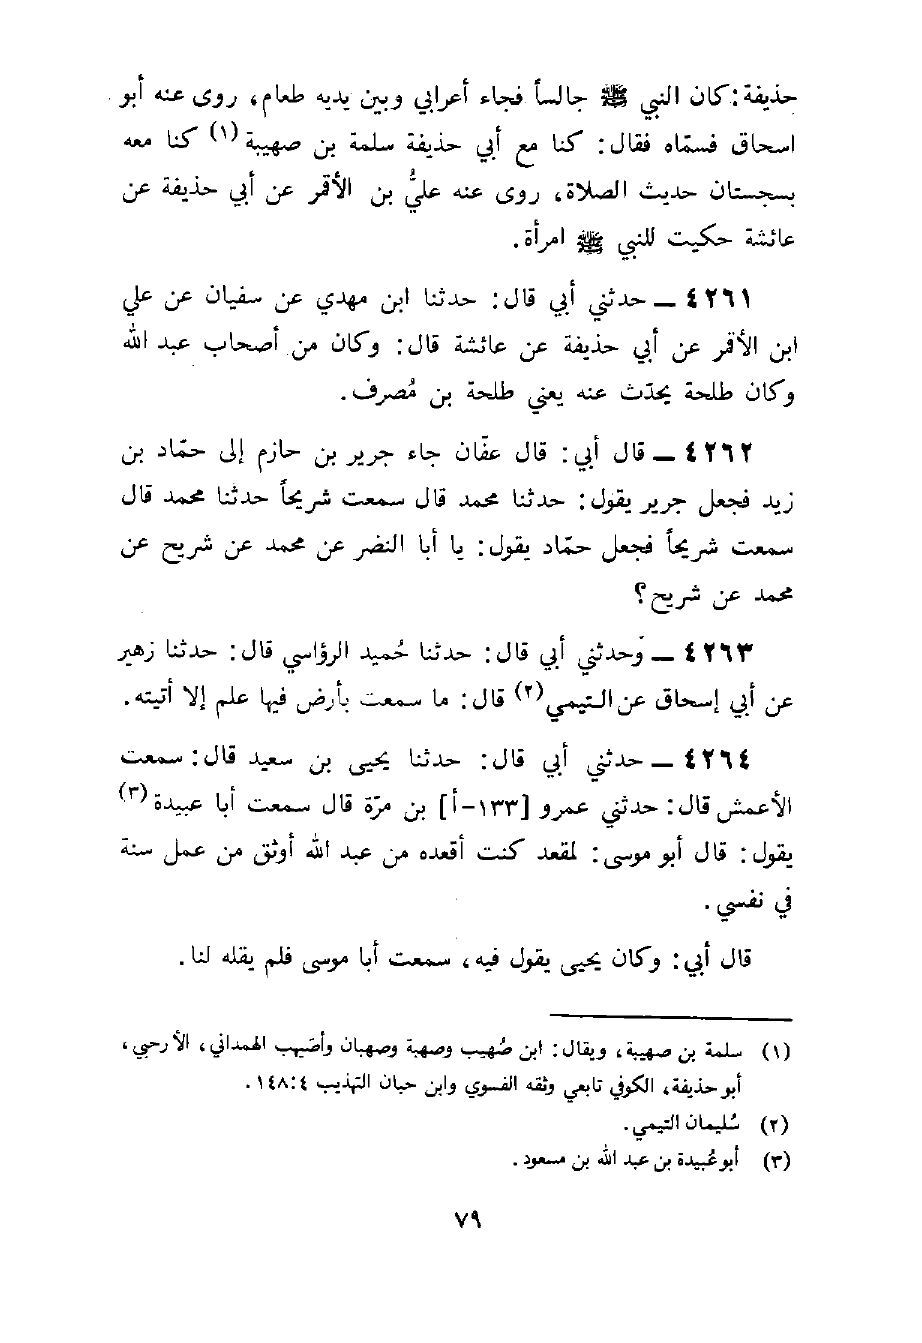 حذيفة: كان النبي ﷺ جالساً فجاء أعرابي وبين يديه طعام، روى عنه أبو
اسحاق فسمّاه فقال: كنا مع أبي حذيفة سلمة بن صهيبة (١) كنا معه
بسجستان حديث الصلاة، روى عنه عليُّ بن الأقمر عن أبي حذيفة عن
عائشة حكيت للنبي ﷺ امرأة.
٤٢٦١ ــ حدثني أبي قال: حدثنا ابن مهدي عن سفيان عن علي
ابن الأقمر عن أبي حذيفة عن عائشة قال: وكان من أصحاب عبد الله
وكان طلحة يحدّث عنه يعني طلحة بن مُصرف.
٤٢٦٢ ــ قال أبي: قال عفّان جاء جرير بن حازم إلى حمّاد بن
زيد فجعل جرير يقول: حدثنا محمد قال سمعت شريحاً حدثنا محمد قال
سمعت شريحاً فجعل حمّاد يقول: يا أبا النضر عن محمد عن شريح عن
محمد عن شريح؟
٤٢٦٣ ــ وحدثني أبي قال: حدثنا حُميد الرؤاسي قال: حدثنا زهير
عن أبي إسحاق عن التيمي (٢) قال: ما سمعت بأرض فيها علم إلا أتيته.
٤٢٦٤ ــ حدثني أبي قال: حدثنا يحيى بن سعيد قال: سمعت
الأعمش قال: حدثني عمرو [١٣٣-أ] بن مرّة قال سمعت أبا عبيدة (٣)
يقول: قال أبو موسى: لمقعد كنت أقعده من عبد الله أوثق من عمل سنة
في نفسي.
قال أبي: وكان يحيى يقول فيه، سمعت أبا موسى فلم يقله لنا.
(١) سلمة بن صهيبة، ويقال: ابن صُهيب وصهبة وصهبان وأصَيهب الهمداني، الأرحبي،
أبو حذيفة، الكوفي تابعي وثقه الفسوي وابن حبان التهذيب ٤: ١٤٨.
(٢) سُليمان التيمي.
(٣) أبو عُبيدة بن عبد الله بن مسعود.
٧٩